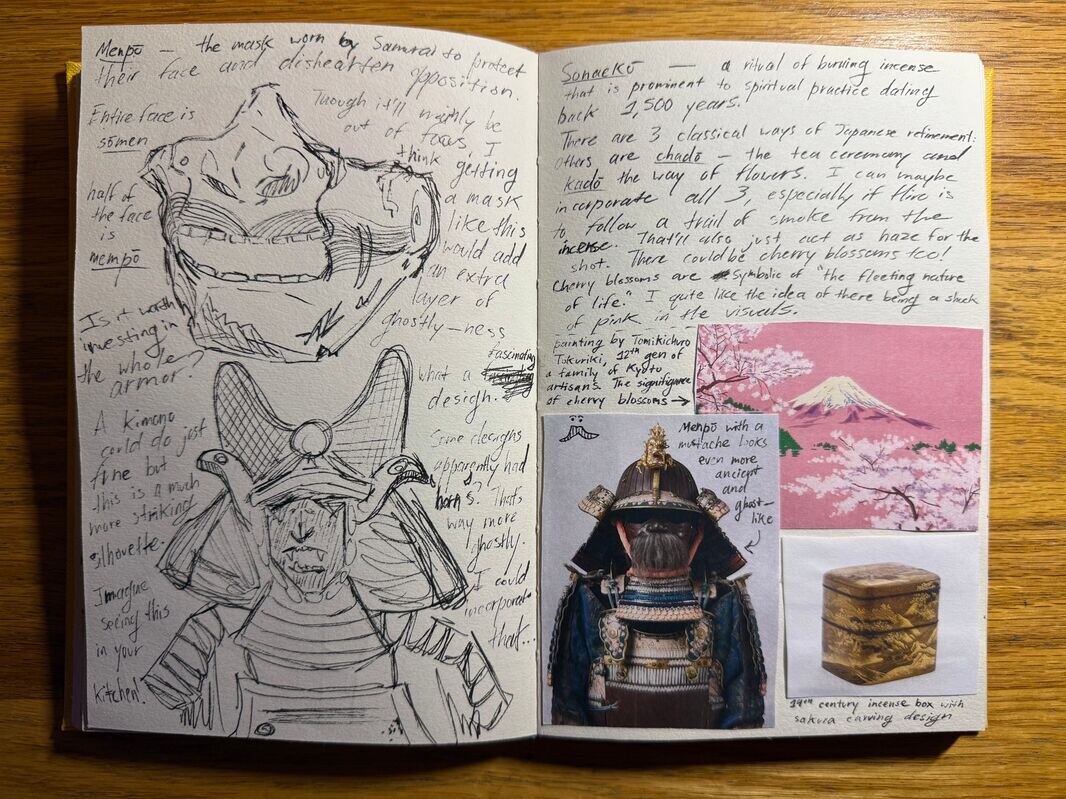 Menpō — the mask worn by Samurai to protect
their face and dishearten opposition.
Entire face is
sōmen
half of
the face
is
mempō
Though it'll mainly be
out of focus, I
think getting
a mask
like this
would add
an extra
layer of
ghostly-ness
Is it worth
investing in
the whole
armor?
A kimono
could do just
fine but
this is a much
more striking
silhouette.
Imagine
seeing this
in your
kitchen!
what a fascinating
design.
Some designs
apparently had
horns? That's
way more
ghostly.
I could
incorporate
that...
Sonaekō — a ritual of burning incense
that is prominent to spiritual practice dating
back 1,500 years.
There are 3 classical ways of Japanese refinement:
others are chadō — the tea ceremony and
kadō the way of flowers. I can maybe
incorporate all 3, especially if Hiro is
to follow a trail of smoke from the
incense. That'll also just act as haze for the
shot. There could be cherry blossoms too!
Cherry blossoms are symbolic of "the fleeting nature
of life." I quite like the idea of there being a shock
of pink in the visuals.
painting by Tomikichiro
Tokuriki, 12th gen of
a family of Kyoto
artisans. The significance
of cherry blossoms →
Menpō with a
mustache looks
even more
ancient
and
ghost-
like
19th century incense box with
sakura carving design